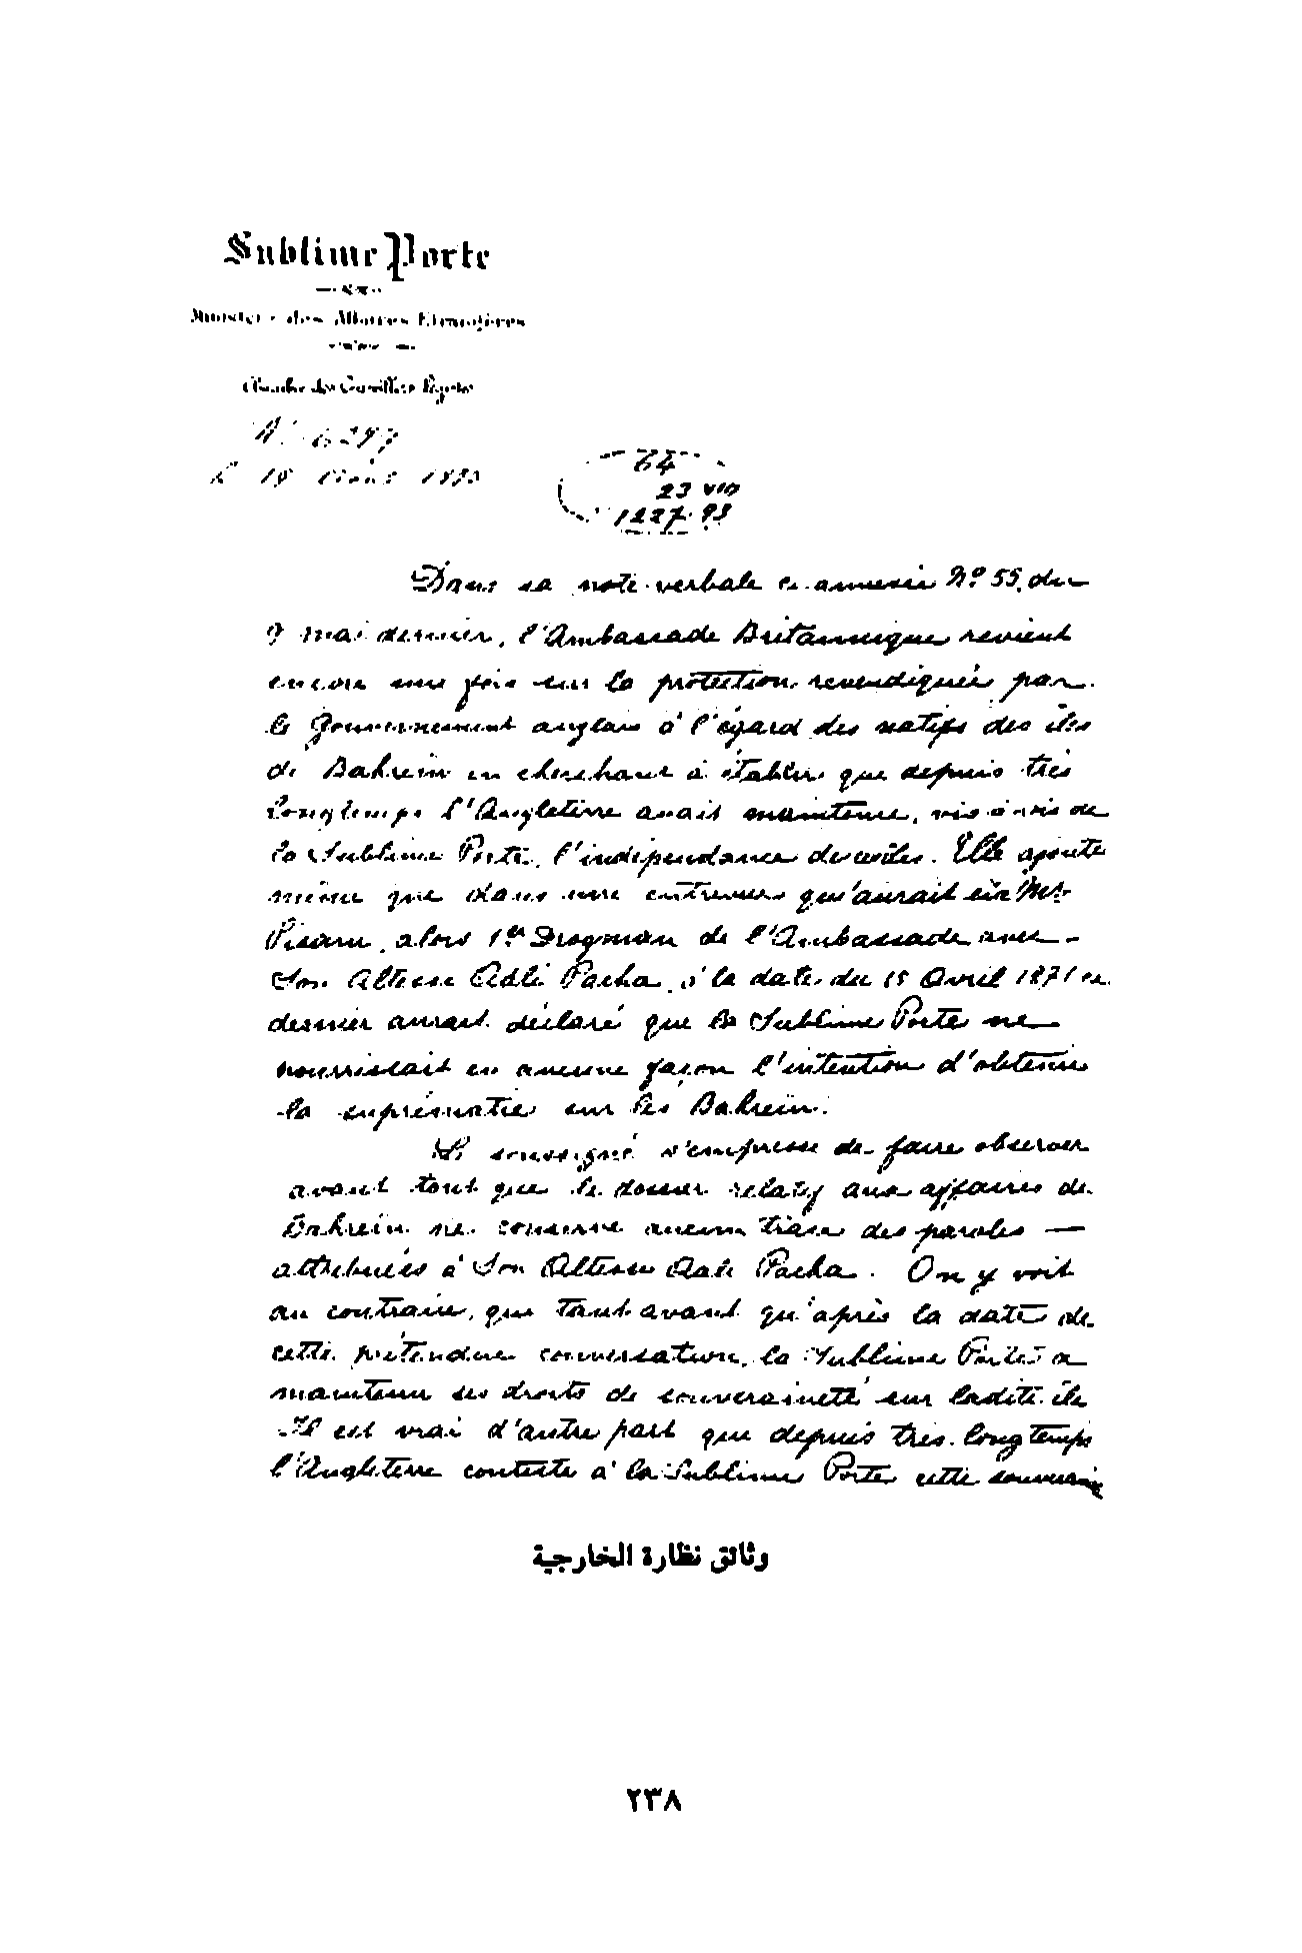 Sublime Porte
Ministère des Affaires Etrangères
Nº 6297
Le 18
64
23 VIII
1227. 93
Dans sa note verbale ci-annexée Nº 55, du
9 mai dernier, l'Ambassade Britannique revient
encore une fois sur la protection revendiquée par
le Gouvernement anglais à l'égard des natifs des îles
de Bahreïn en cherchant à établir que depuis très
longtemps l'Angleterre avait maintenu, vis à vis de
la Sublime Porte, l'indépendance de ces îles. Elle ajoute
même que dans une entrevue qu'aurait eue Mr
Pisani, alors 1er Drogman de l'Ambassade avec
Son Altesse Aali Pacha, à la date du 15 Avril 1871 ce
dernier aurait déclaré que la Sublime Porte ne
nourrissait en aucune façon l'intention d'obtenir
la suprématie sur les Bahreïn.
Le soussigné s'empresse de faire observer
avant tout que le dossier relatif aux affaires de
Bahreïn ne conserve aucune trace des paroles —
attribuées à Son Altesse Aali Pacha. On y voit
au contraire, que tant avant qu'après la date de
cette prétendue conversation, la Sublime Porte a
maintenu ses droits de souveraineté sur ladite île
Il est vrai d'autre part que depuis très longtemps
l'Angleterre conteste à la Sublime Porte cette
وثائق نظارة الخارجية
٢٣٨